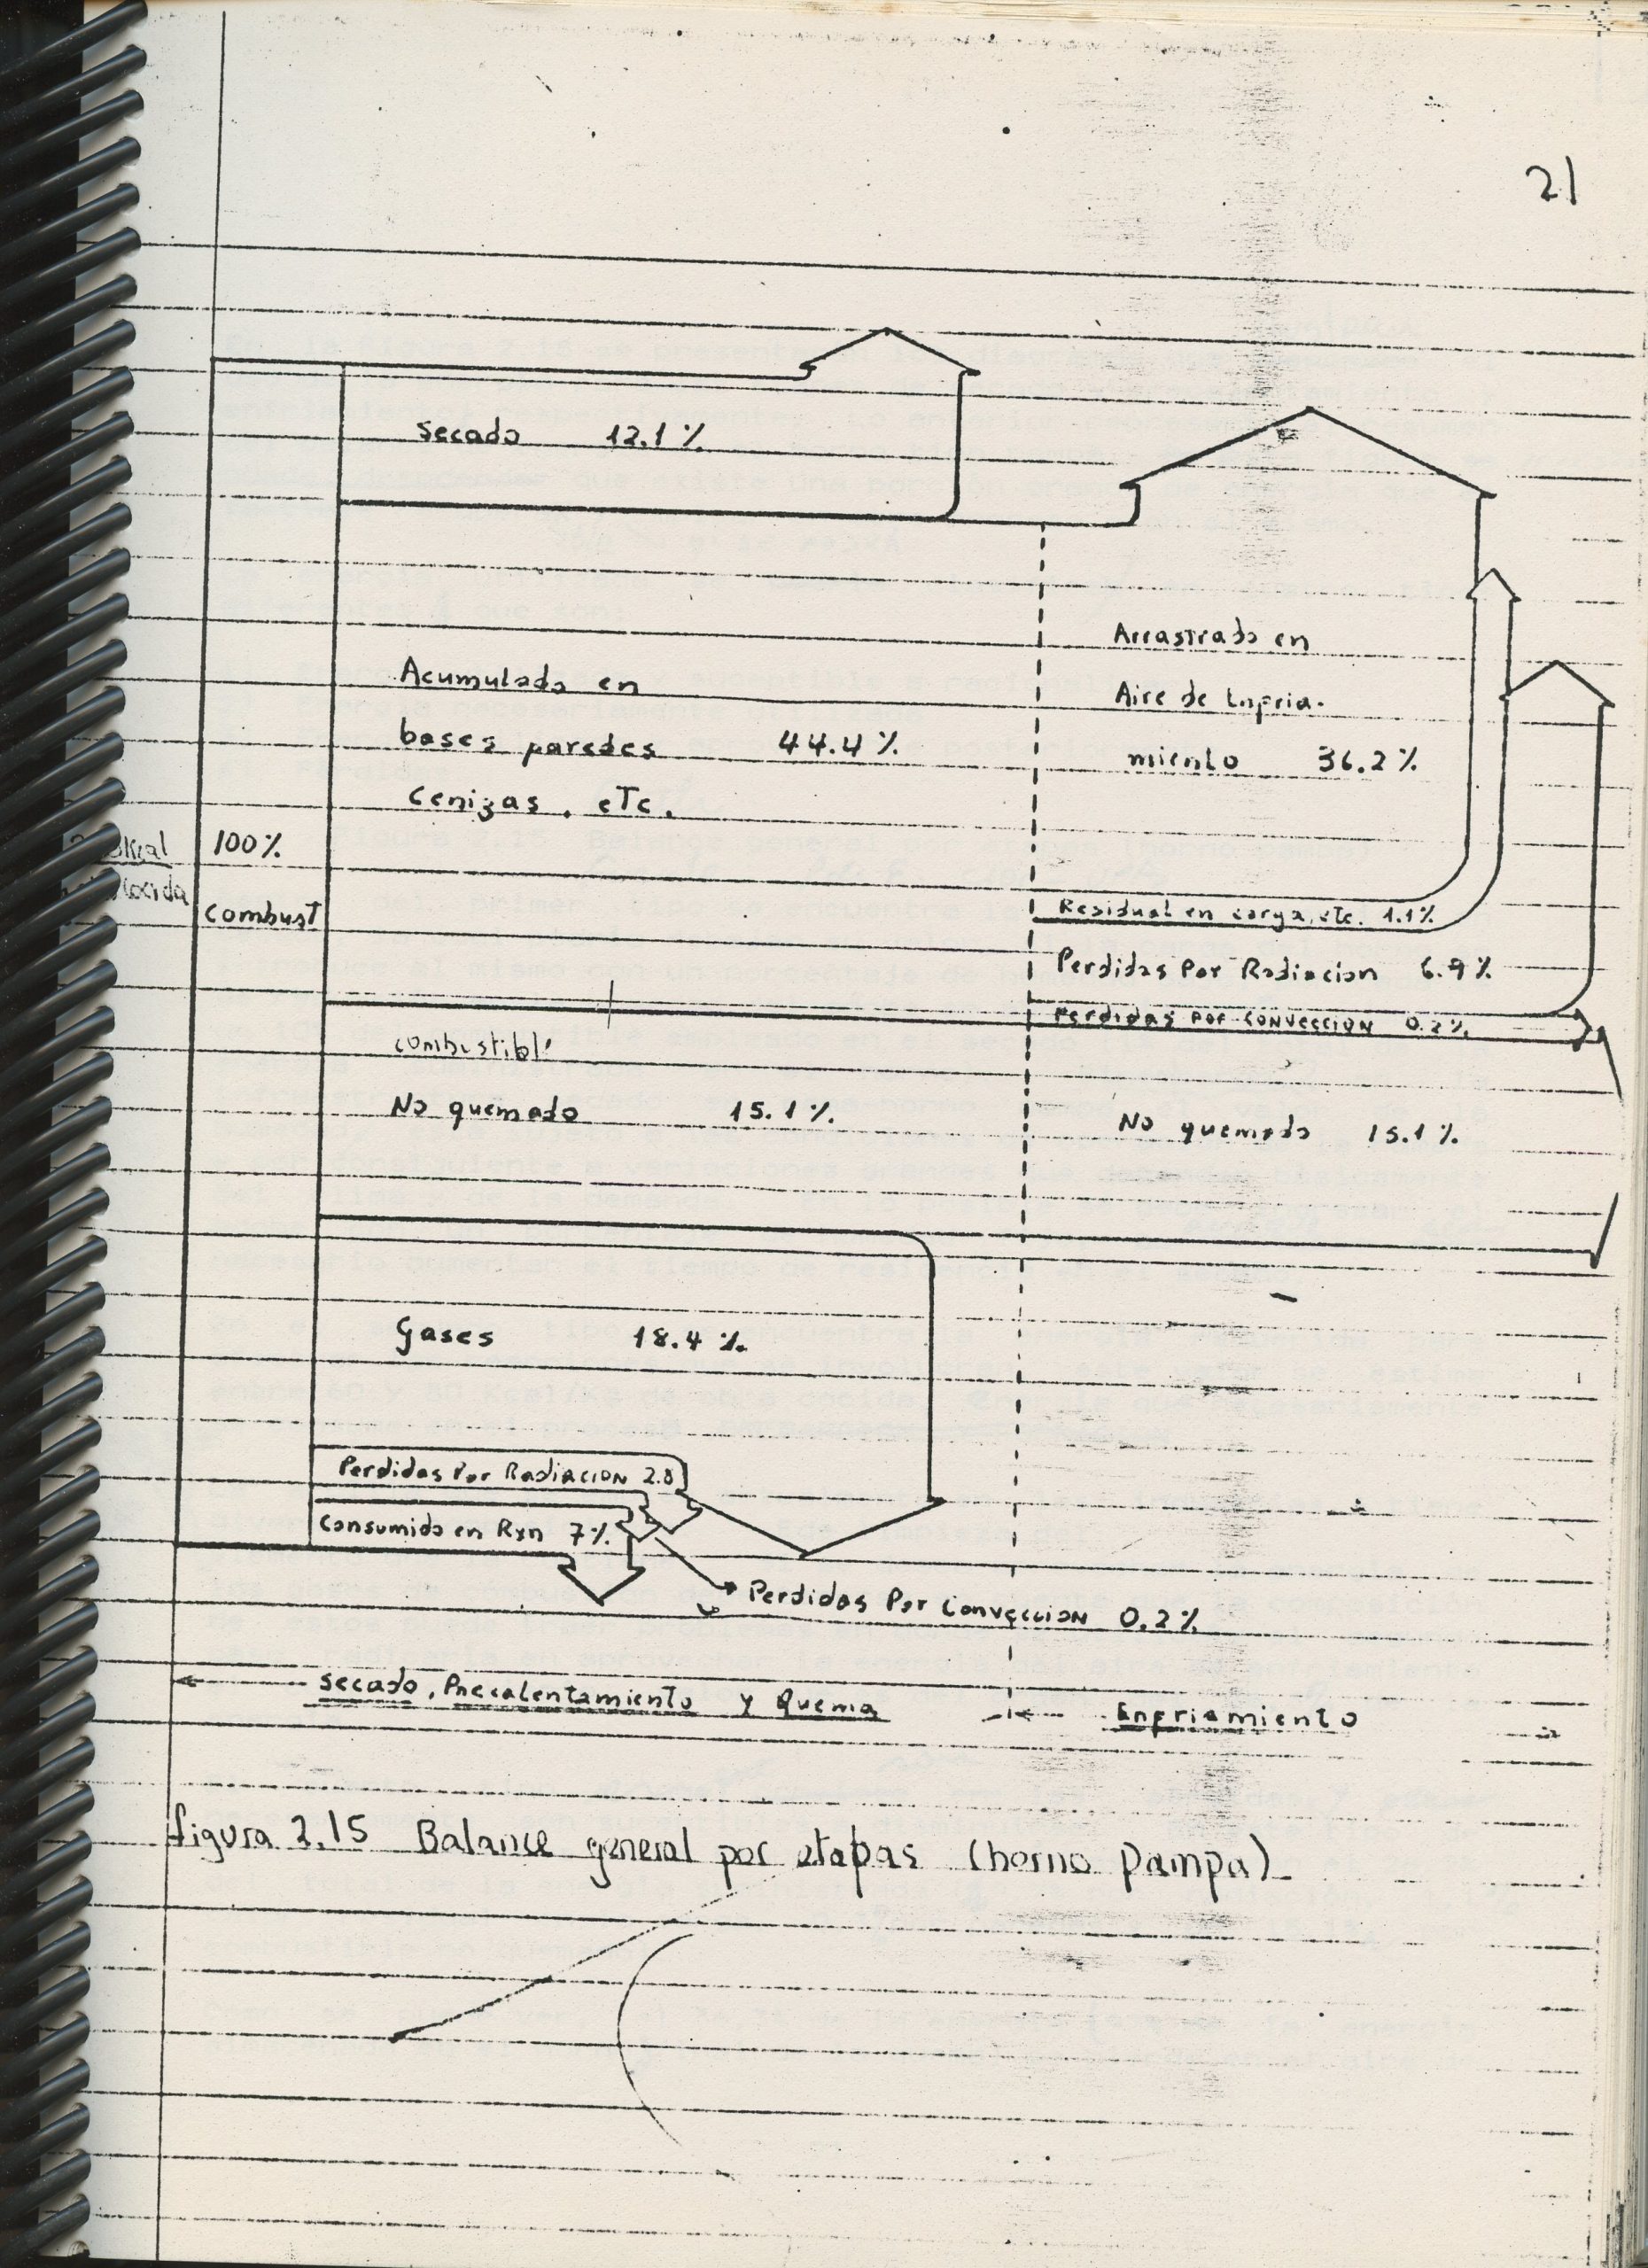 21
Secado 12.1 %
Acumulado en
bases paredes 44.4 %
Cenizas, etc.
Arrastrado en
Aire de Enfria-
miento 36.2 %
100 %
combust
cocida
Residual en carga, etc. 1.1 %
Perdidas Por Radiacion 6.9 %
Perdidas por convección 0.2 %
combustible
No quemado 15.1 %
No quemado 15.1 %
Gases 18.4 %
Perdidas Por Radiación 2.8
Consumido en Rxn 7 %
Perdidas Por Convección 0.2 %
Secado, Precalentamiento y Quema
Enfriamiento
figura 2.15 Balance general por etapas (horno Pampa)